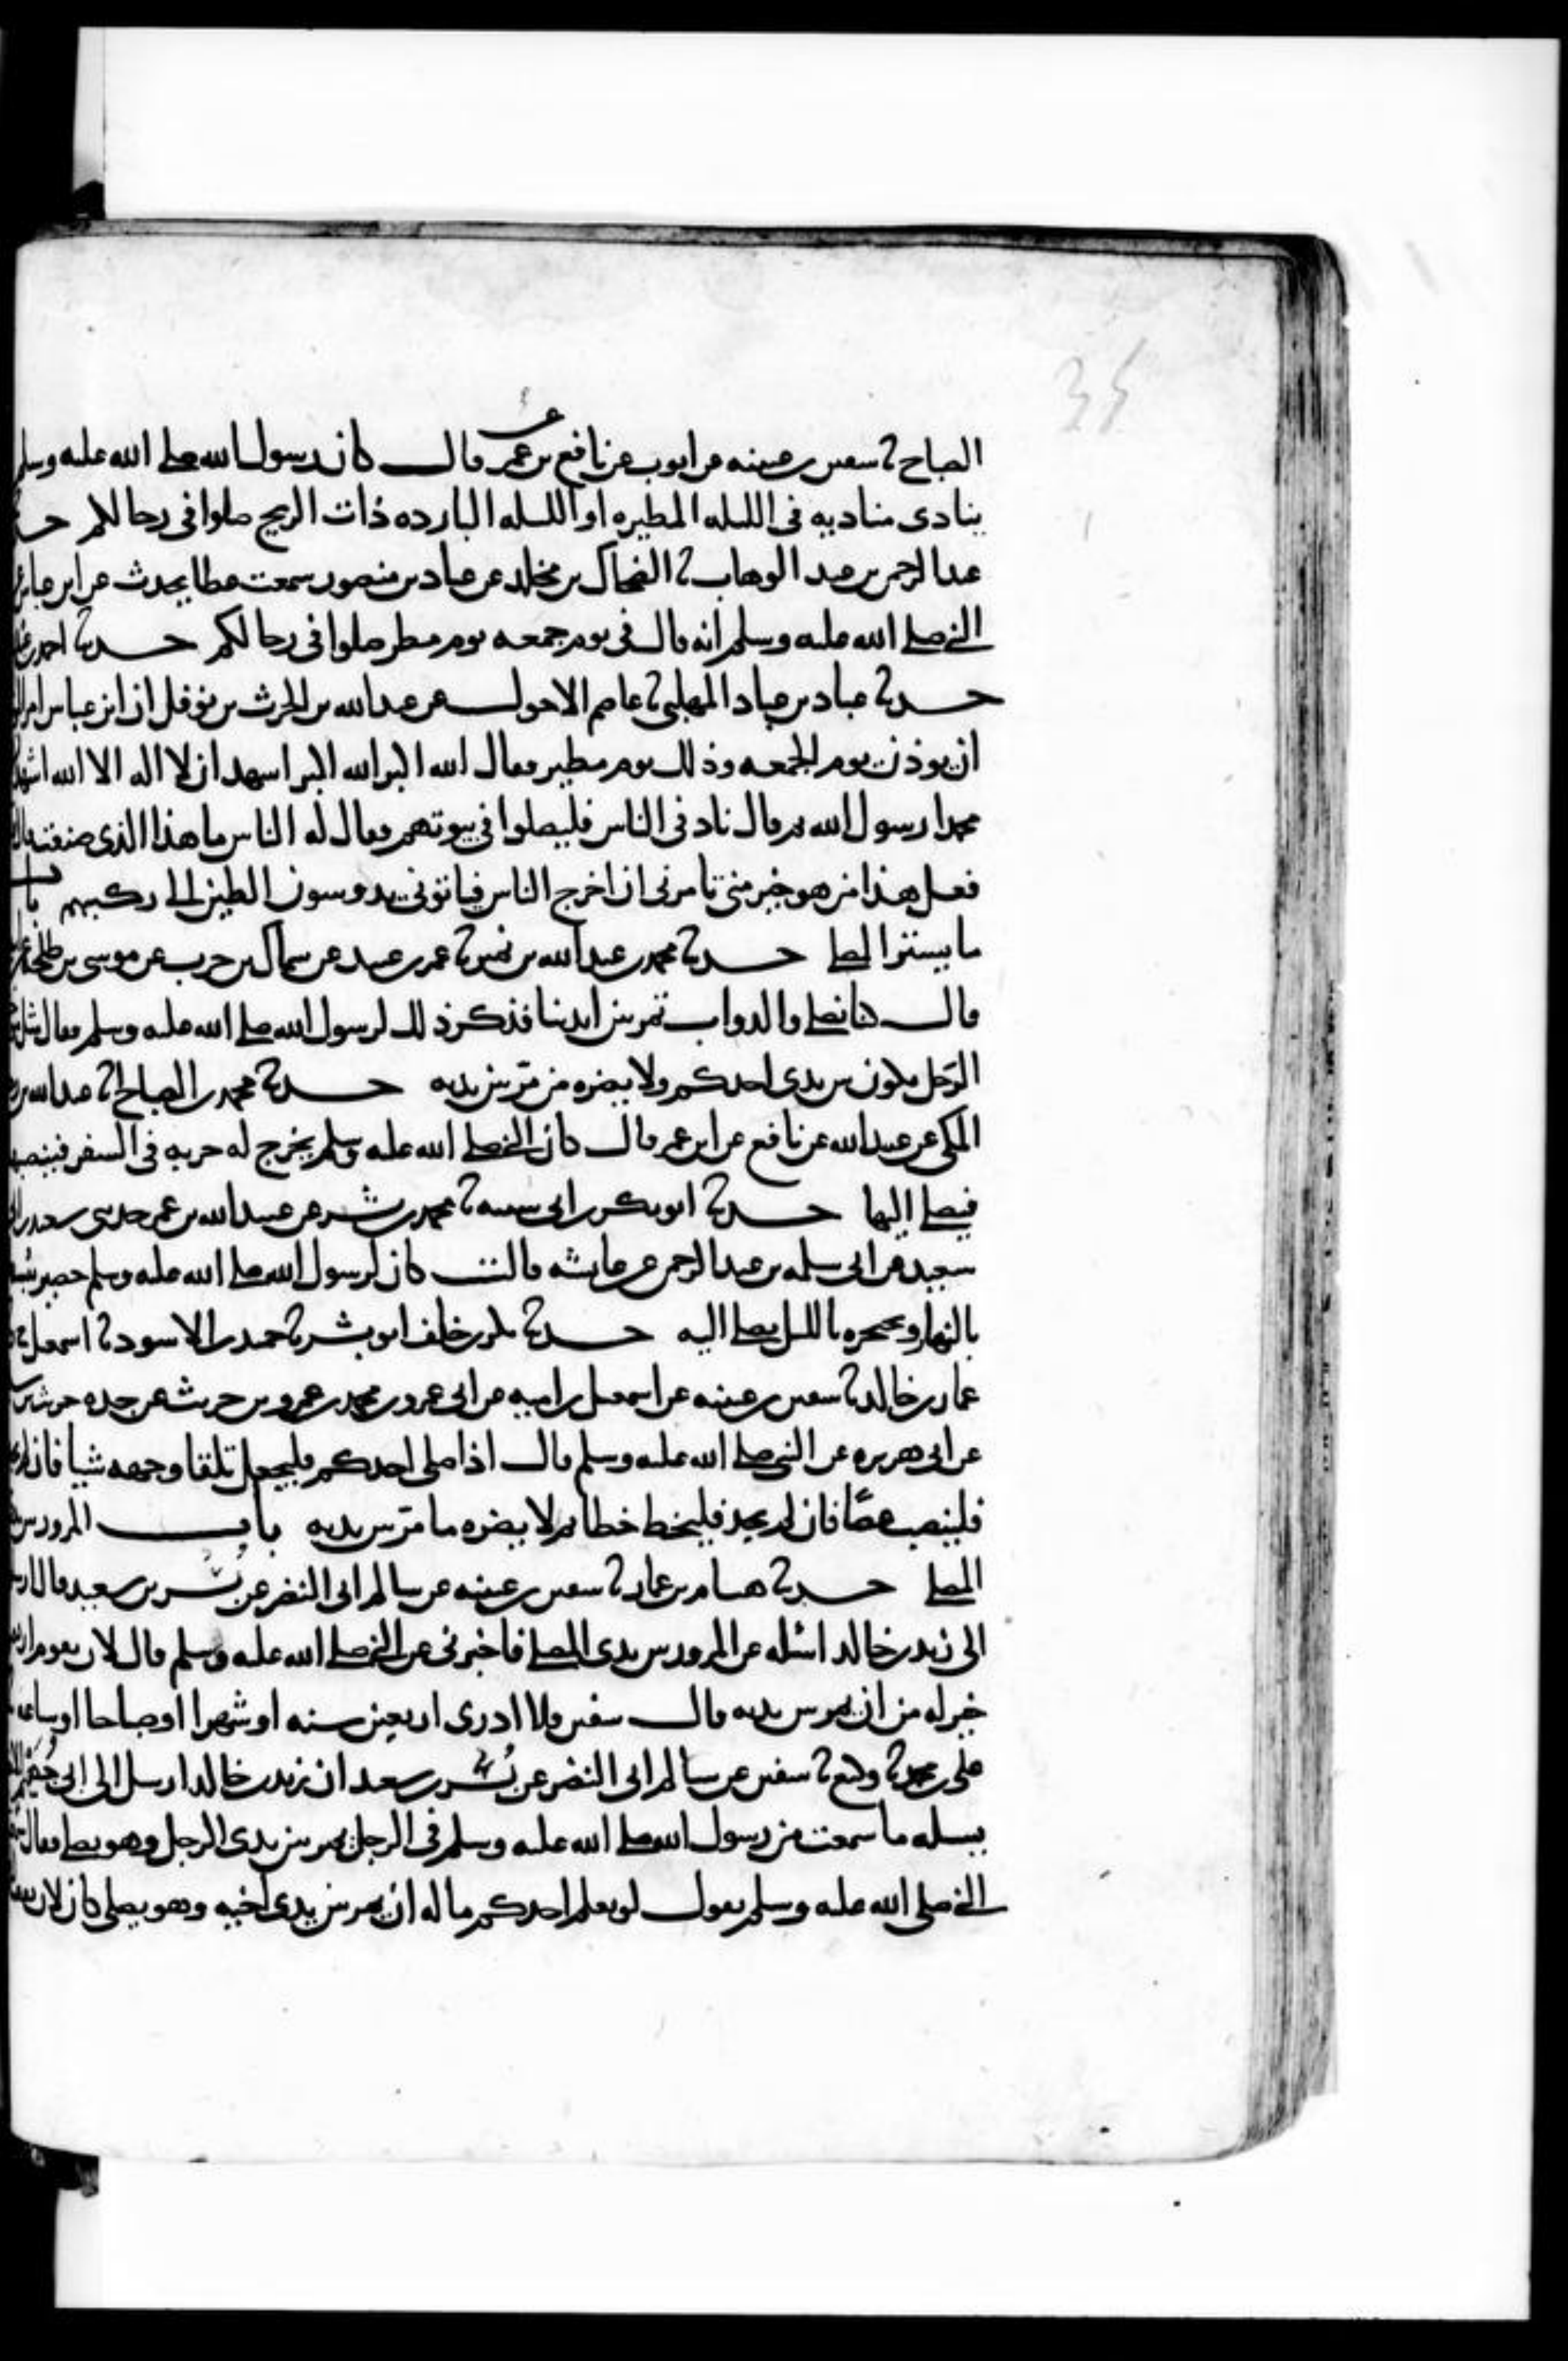 35
الصباح ثنا سفين بن عيينه عن ايوب عن نافع عن بن عمر قال كان رسول الله صلى الله عليه وسلم
ينادى مناديه فى الليله المطيره او الليله البارده ذات الريح صلوا فى رحالكم
عبد الرحمن بن عبد الوهاب ثنا الضحاك بن مخلد عن عباد بن منصور سمعت عطا يحدث عن ابن عباس
النبي صلى الله عليه وسلم انه قال فى يوم جمعه يوم مطر صلوا فى رحالكم حدثنا احمد بن
حدثنا عباد بن عباد المهلبى ثنا عاصم الاحول عن عبد الله بن الحرث بن نوفل ان ابن عباس امر
ان يوذن يوم الجمعه وذلك يوم مطير فقال الله اكبر الله اكبر اشهد ان لا اله الا الله اشهد
محمدا رسول الله ثم قال ناد فى الناس فليصلوا فى بيوتهم فقال له الناس ما هذا الذى صنعته
فعل هذا من هو خير منى تامرنى ان اخرج الناس فياتونى يدوسون الطين الى ركبهم باب
ما يستر المصلى حدثنا محمد بن عبد الله بن نمير ثنا عمر بن عبيد عن سماك بن حرب عن موسى بن طلحه
قال كنا نصلى والدواب تمر بين ايدينا فذكر ذلك لرسول الله صلى الله عليه وسلم فقال مثل
الرحل يكون بين يدى احدكم ولا يضره من مر بين يديه حدثنا محمد بن الصباح ثنا عبد الله بن
المكى عن عبيد الله عن نافع عن ابن عمر قال كان النبي صلى الله عليه وسلم يخرج له حربه فى السفر فينصبها
فيصلى اليها حدثنا ابو بكر بن ابى شيبه ثنا محمد بن بشر عن عبيد الله بن عمر حدثنى سعيد بن
سعيد عن ابى سلمه بن عبد الرحمن عن عايشه قالت كان لرسول الله صلى الله عليه وسلم حصير يبسط
بالنهار ويحتجره بالليل يصلى اليه حدثنا بكر بن خلف ابو بشر ثنا حميد بن الاسود ثنا اسمعيل
عمار بن خالد ثنا سفين بن عيينه عن اسمعيل بن اميه عن ابى عمرو بن محمد بن عمرو بن حريث عن جده حريث بن
عن ابى هريره عن النبى صلى الله عليه وسلم قال اذا صلى احدكم فليجعل تلقا وجهه شيا فان لم
فلينصب عصًا فان لم يجد فليخط خطا ثم لا يضره ما مر بين يديه باب المرور بين
المصلى حدثنا هشام بن عمار ثنا سفين بن عيينه عن سالم ابى النضر عن بُسر بن سعيد قال
الى زيد بن خالد اسئله عن المرور بين يدى المصلى فاخبرنى عن النبي صلى الله عليه وسلم قال لان يقوم
خير له من ان يمر بين يديه قال سفين فلا ادرى اربعين سنه او شهرا او صباحا او ساعه
على بن محمد ثنا وكيع ثنا سفين عن سالم ابى النضر عن بُسر بن سعيد ان زيد بن خالد ارسل الى ابى جُهيم
يسله ما سمعت من رسول الله صلى الله عليه وسلم فى الرجل يمر بين يدى الرجل وهو يصلى فقال
النبي صلى الله عليه وسلم يقول لو يعلم احدكم ما له ان يمر بين يدى اخيه وهو يصلى كان لان